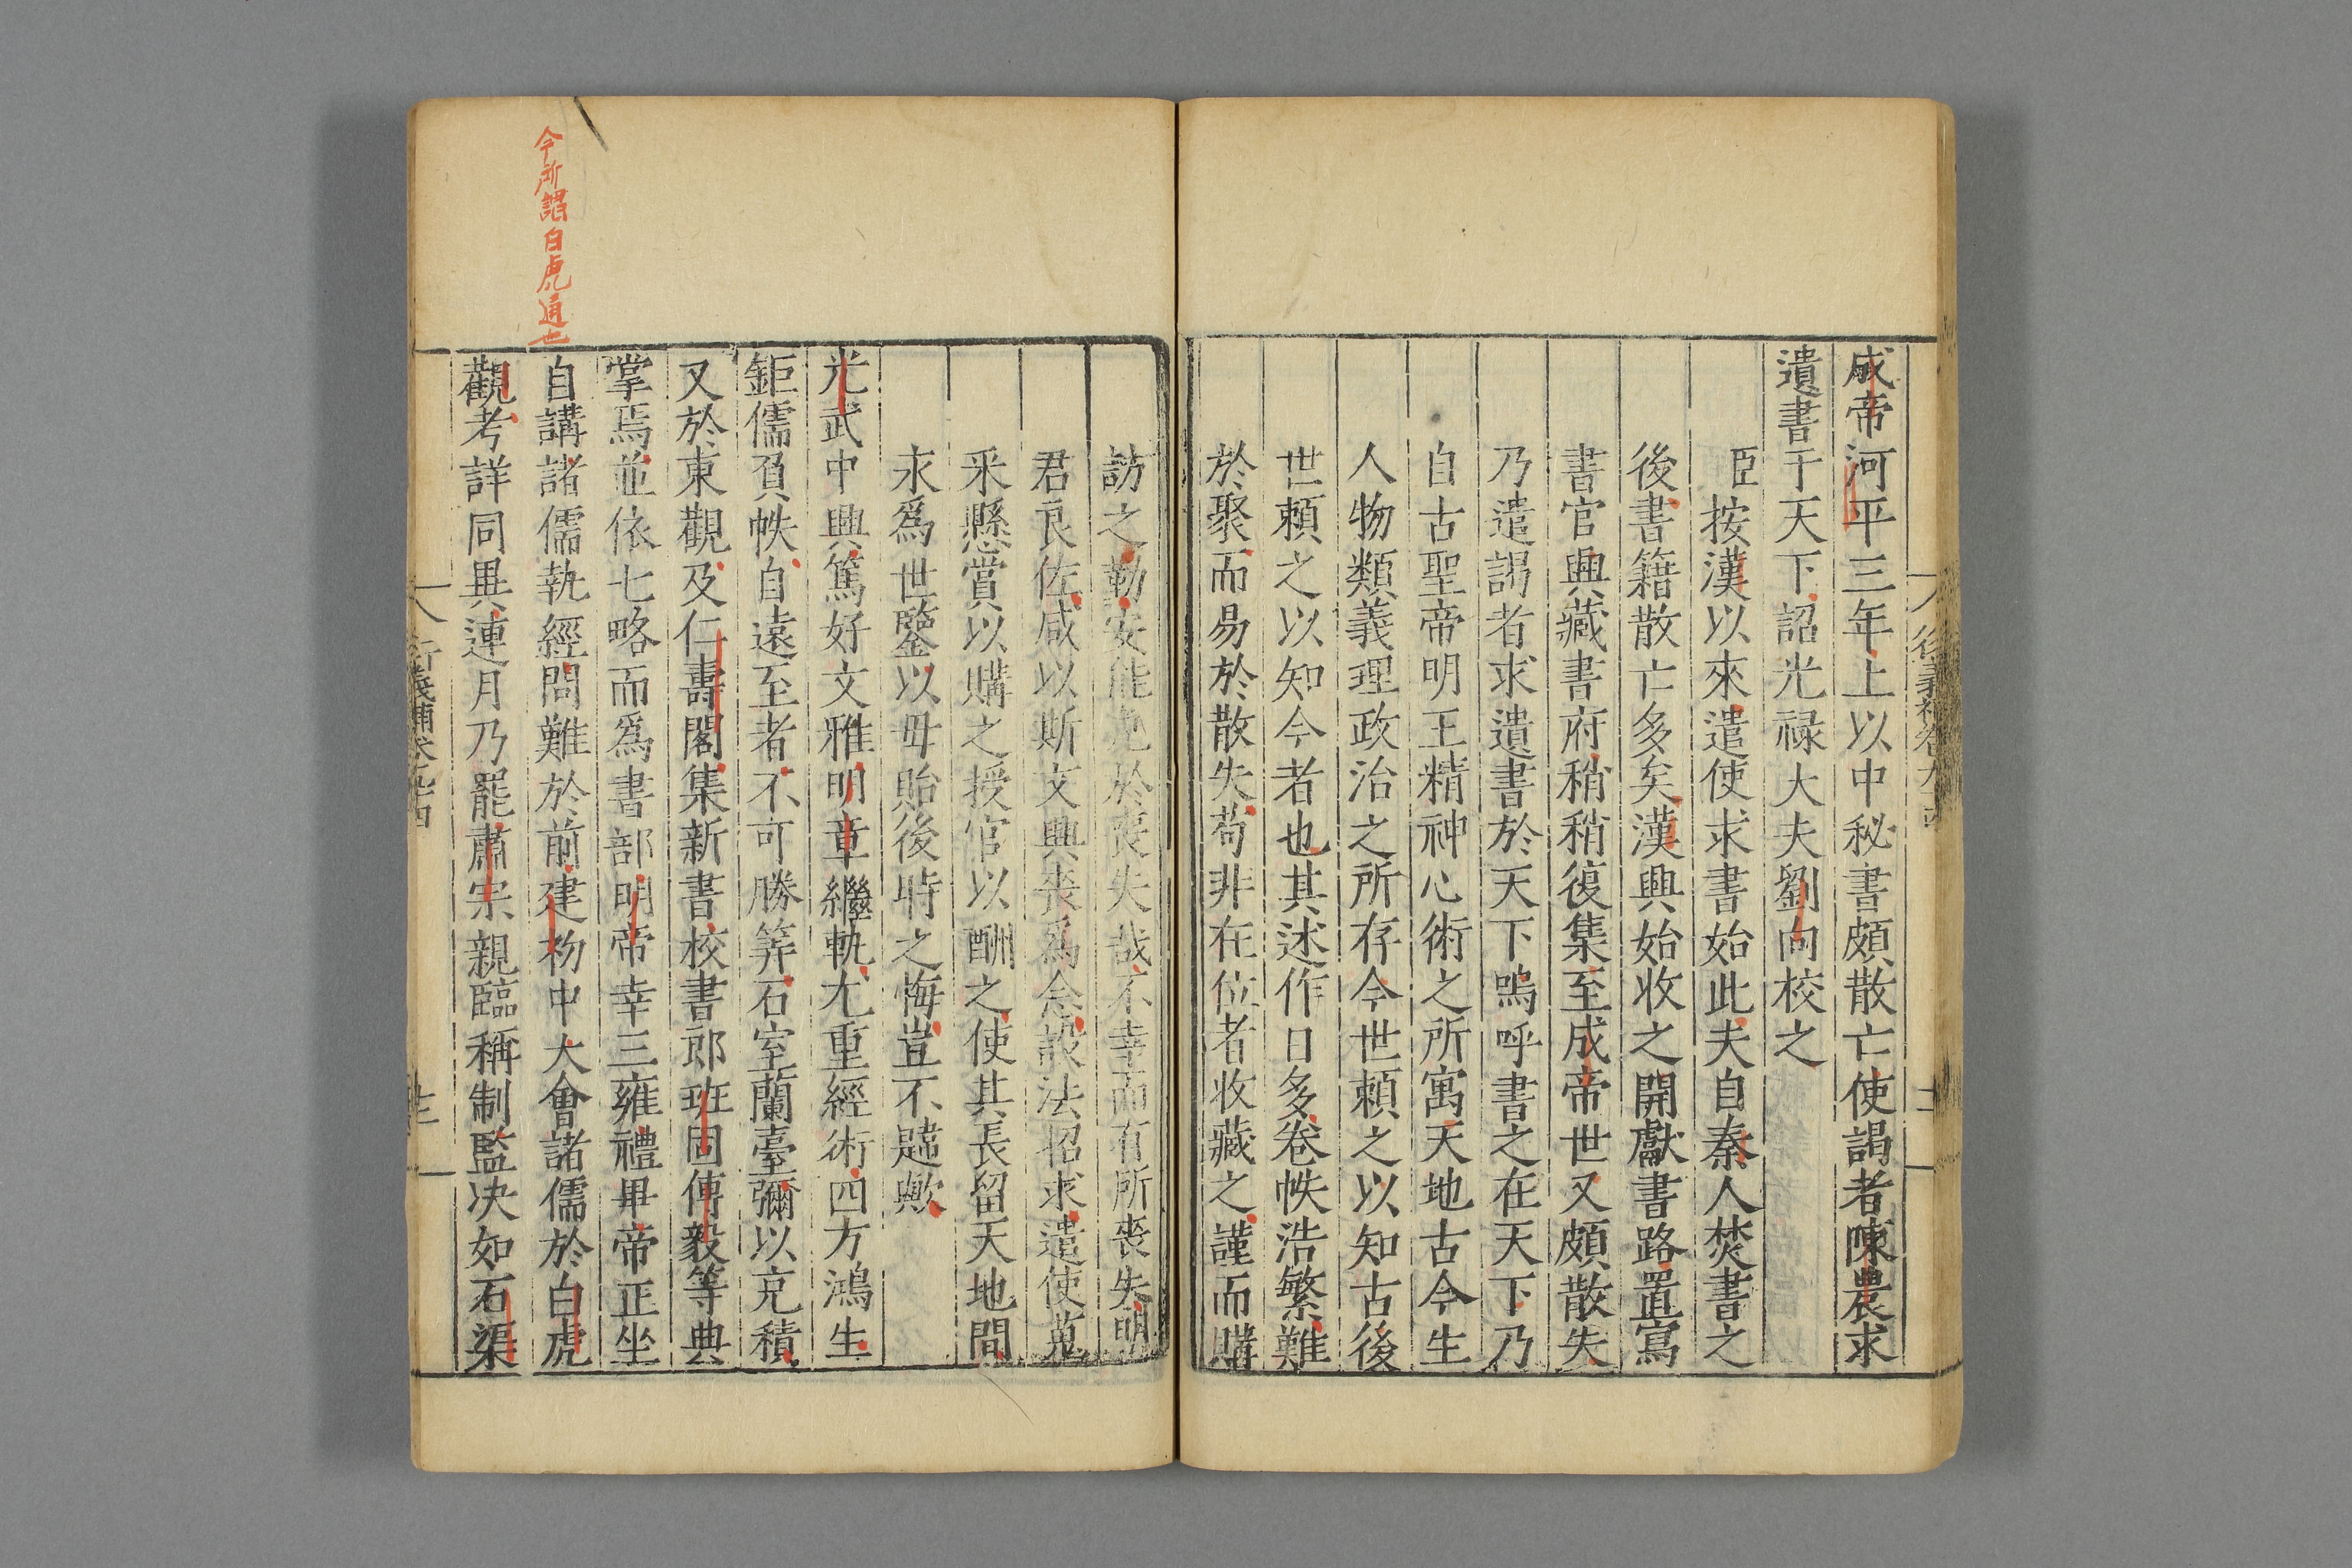 成帝河平三年上以中秘書頗散亡使謁者陳農求
遺書于天下詔光禄大夫劉向校之
臣按漢以來遣使求書始此夫自秦人焚書之
後書籍散亡多矣漢興始收之開獻書路置寫
書官興藏書府稍稍復集至成帝世又頗散失
乃遣謁者求遺書於天下嗚呼書之在天下乃
自古聖帝明王精神心術之所寓天地古今生
人物類義理政治之所存今世頼之以知古後
世頼之以知今者也其述作日多卷帙浩繁難
於聚而易於散失苟非在位者收藏之謹而購
訪之勤安能免於喪失哉不幸而有所喪失明
君良佐咸以斯文興喪爲念設法招求遣使蒐
采懸賞以購之授官以酬之使其長留天地間
永爲世鑒以毋貽後時之悔豈不韙歟
光武中興篤好文雅明章繼軌尤重經術四方鴻生
鉅儒負帙自遠至者不可勝筭石室蘭臺彌以充積
又於東觀及仁壽閣集新書校書郎班固傅毅等典
掌焉並依七略而爲書部明帝幸三雍禮畢帝正坐
自講諸儒執經問難於前建初中大會諸儒於白虎
觀考詳同異連月乃罷肅宗親臨稱制監决如石渠
今所謂白虎通也
衍義補卷九十四